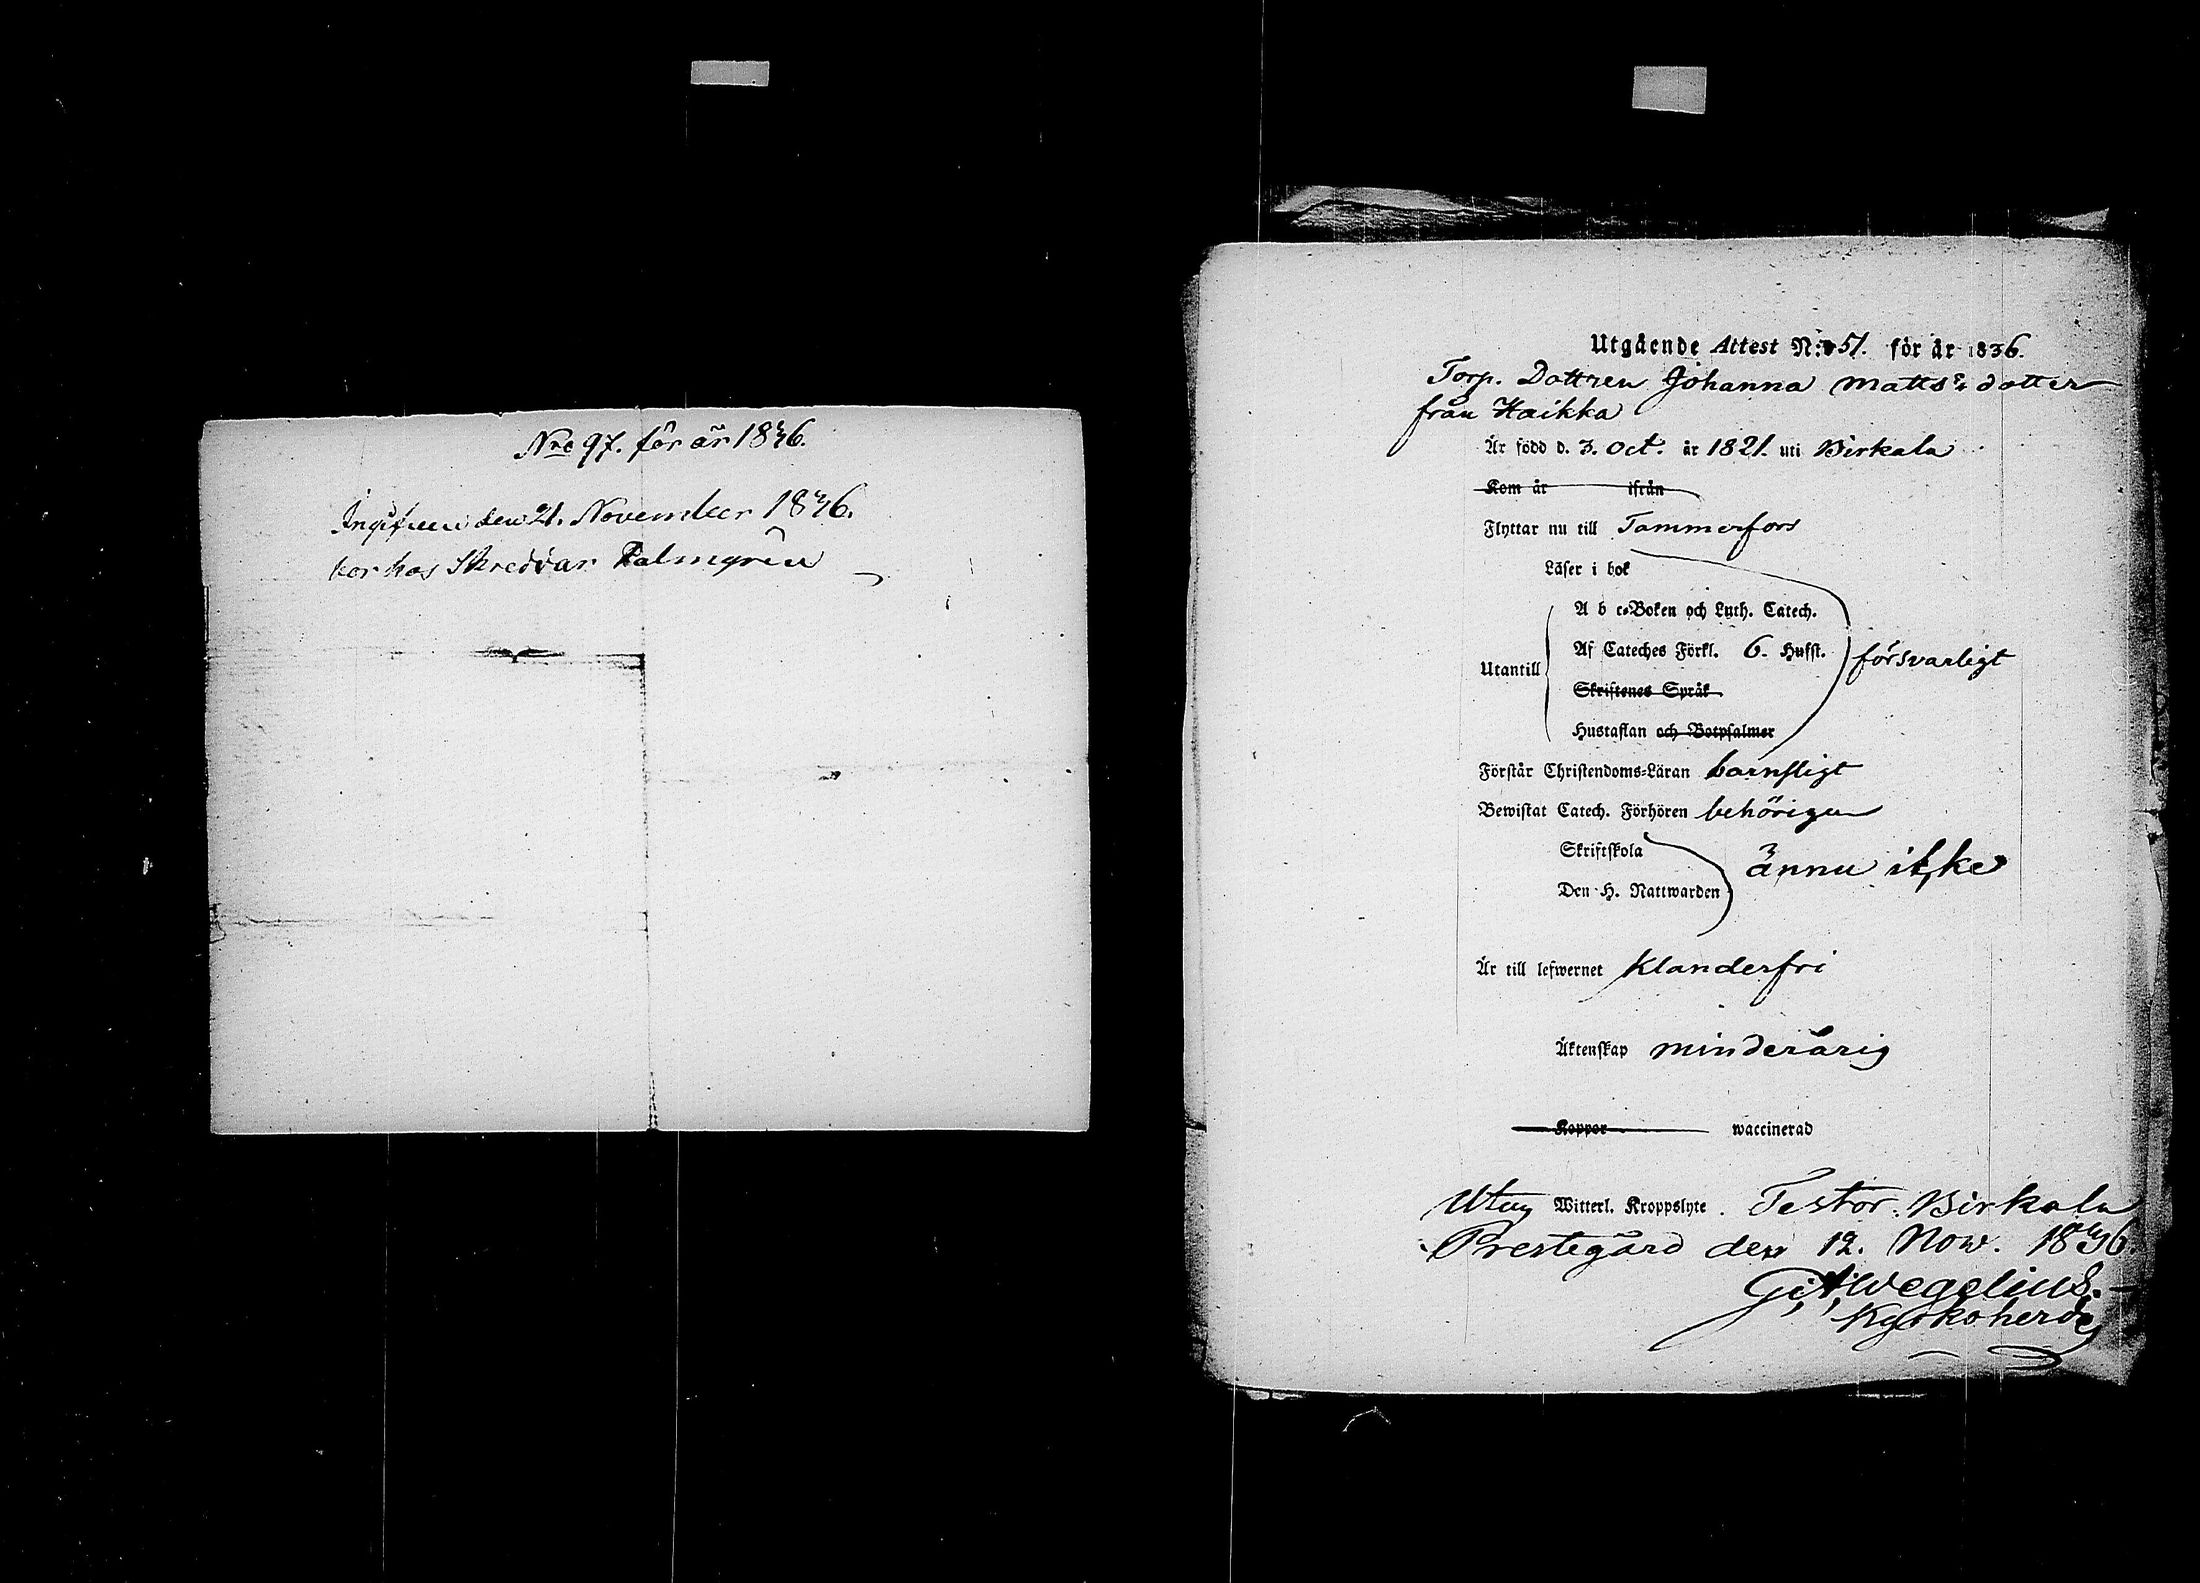 Nro 97. för år 1836.
Ingifven den 21. November 1836.
bor hos Skreddar Palmgrén
Utgående Attest N:o 51. för år 1836.
Torp. Dottren Johanna Mattsdotter
från Haikka
Är född d. 3. Oct. år 1821. uti Birkala
Kom år ifrån
Flyttar nu till Tammerfors
Läser i bok
A b c-Boken och Luth. Catech.
Af Cateches Förkl. 6. Hufst.
Utantill
försvarligt
Skriftenes Språk
Hustaflan och Botpsalmer
Förstår Christendoms-Läran barnsligt
Bewistat Catech. Förhören behörigen
Skriftskola
ännu icke
Den H. Nattwarden
Är till lefwernet Klanderfri
Äktenskap minderårig
Koppor waccinerad
Utan Witterl. Kroppslyte. Testor. Birkala
Prestegård den 12. Now. 1836.
G: A: Wegelius.
Kyrkoherde